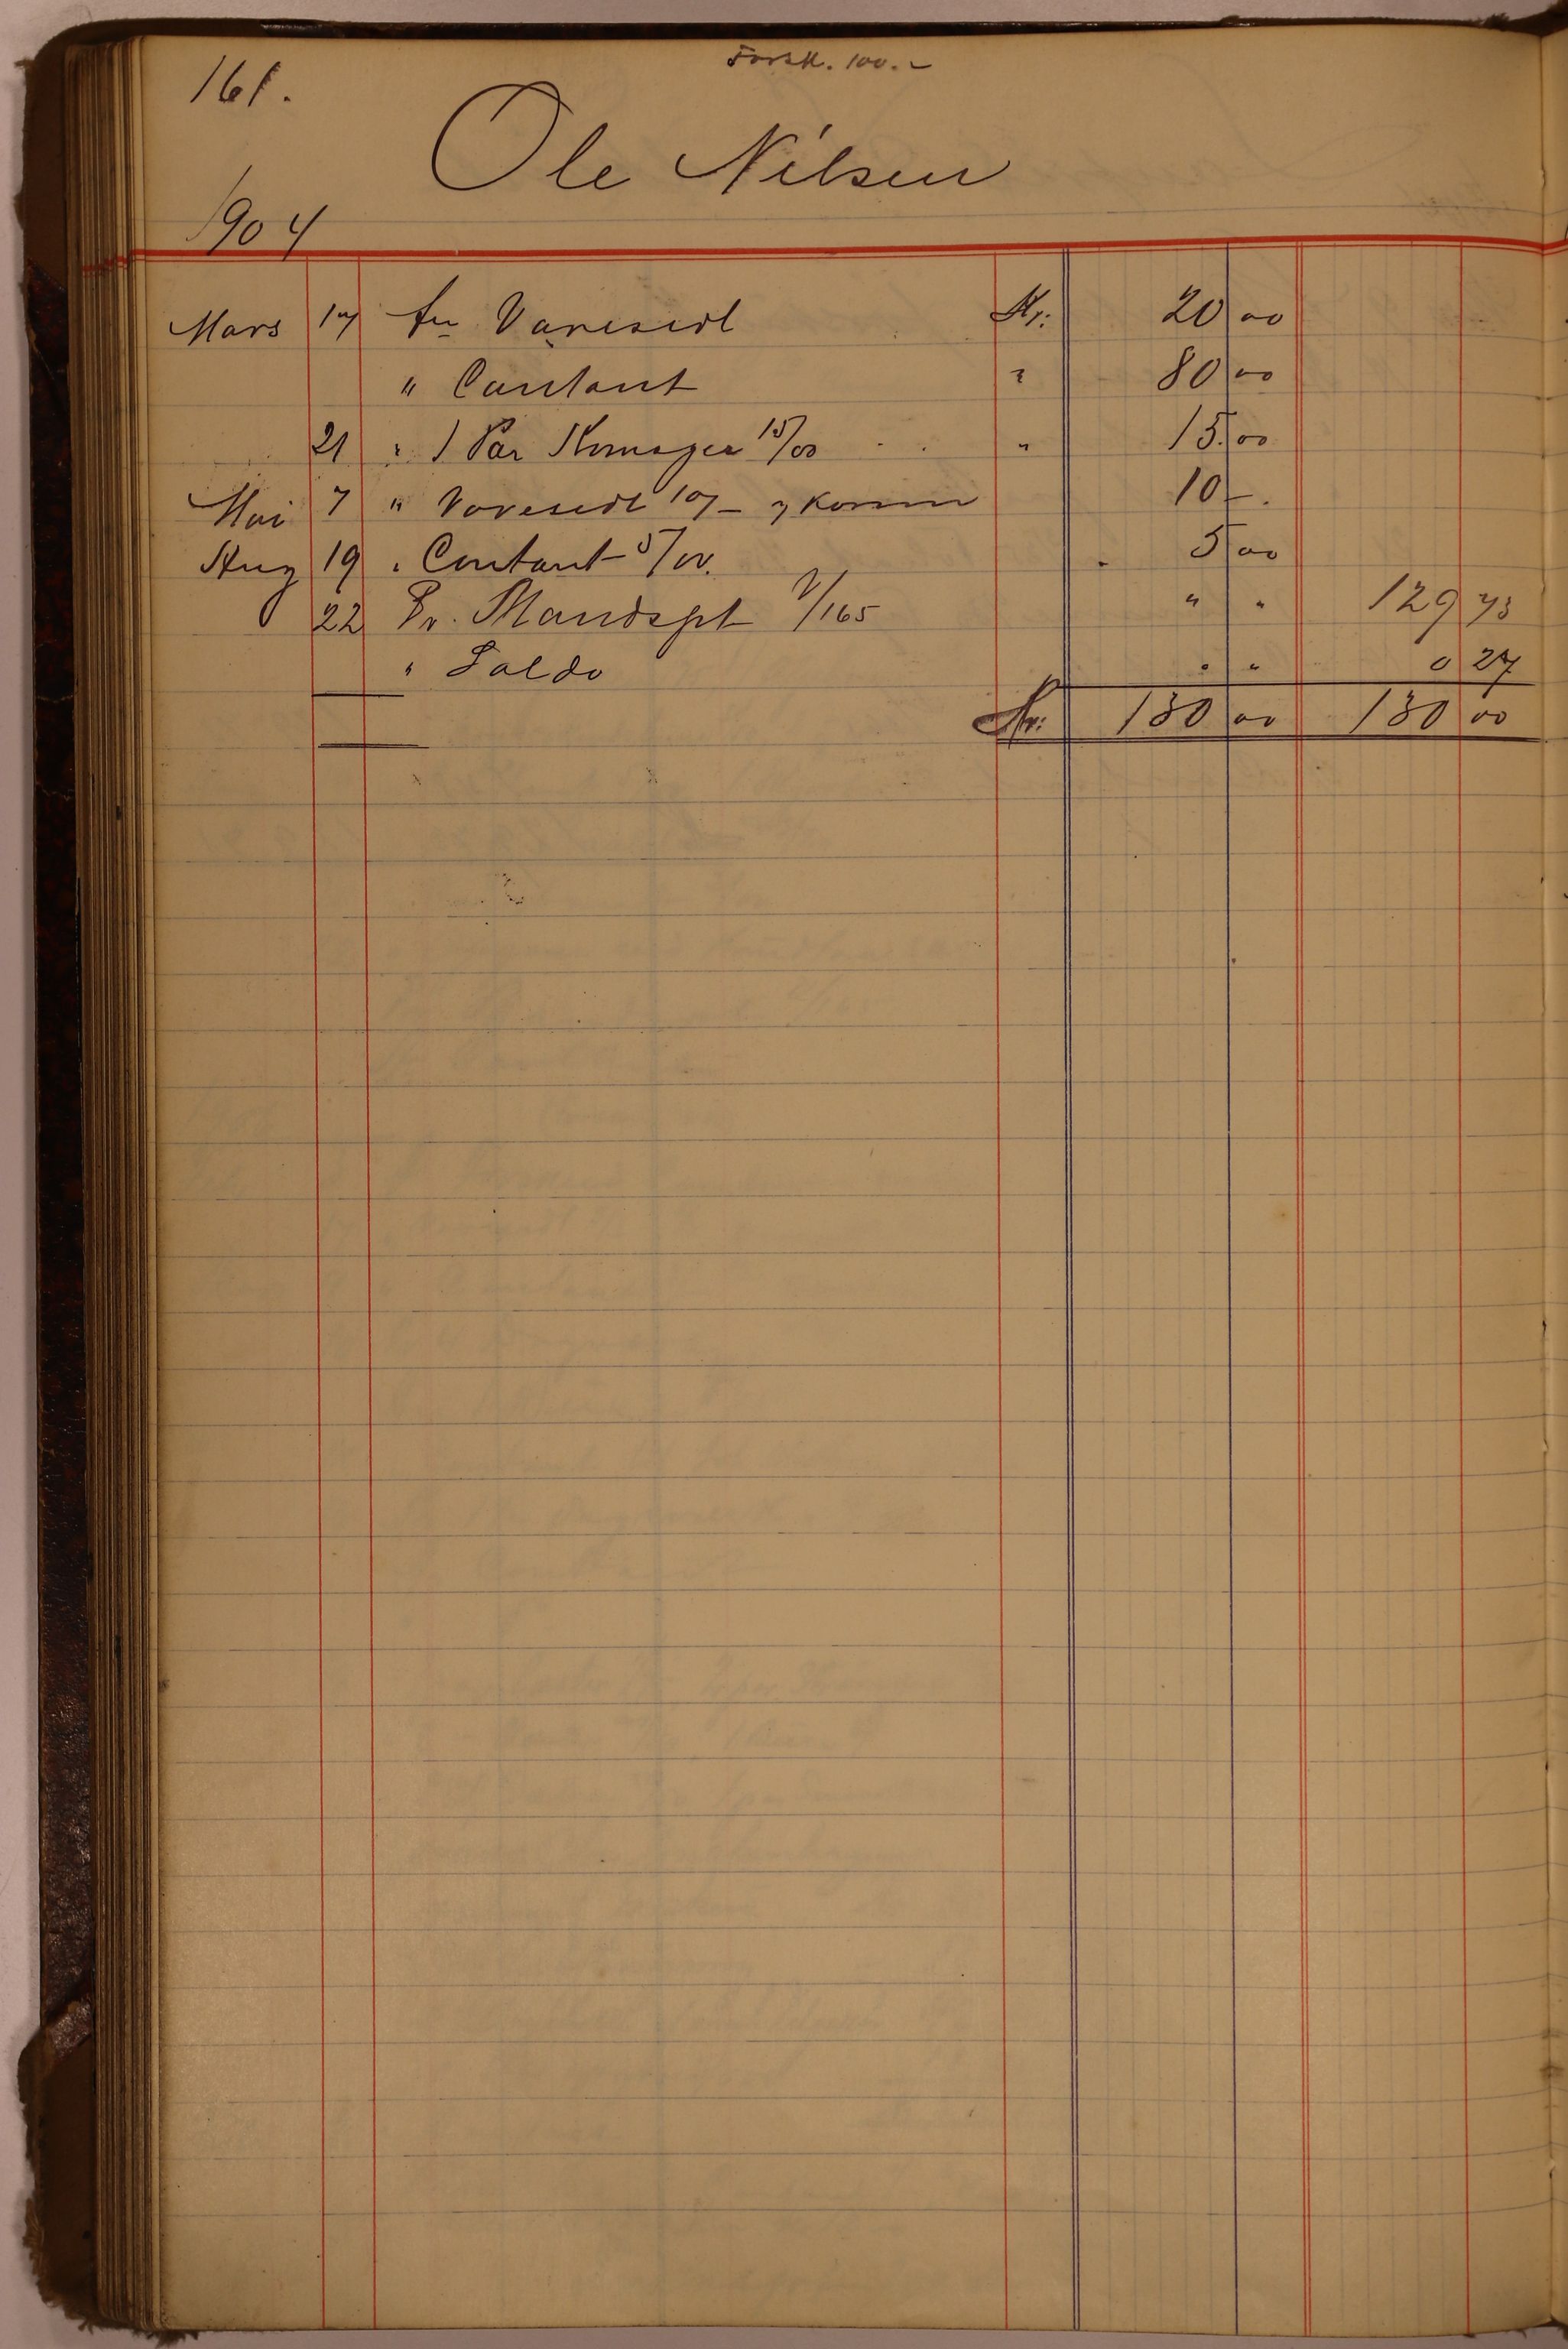 Forsk. 100.-
161.
Ole Nilsen
1904
Mars 17 An Varesedl Kr: 20 00
" Contant " 80 00
21 " 1 Par Komager 15/00 " 15 00
Mai 7 " Varesedl 10/- 10 -
Aug 19 " Contant 5/00. 5 00
22 Pr. Mandspt V/165 " " 129 73
" Saldo " " 0 27
Kr: 130 00 130 00